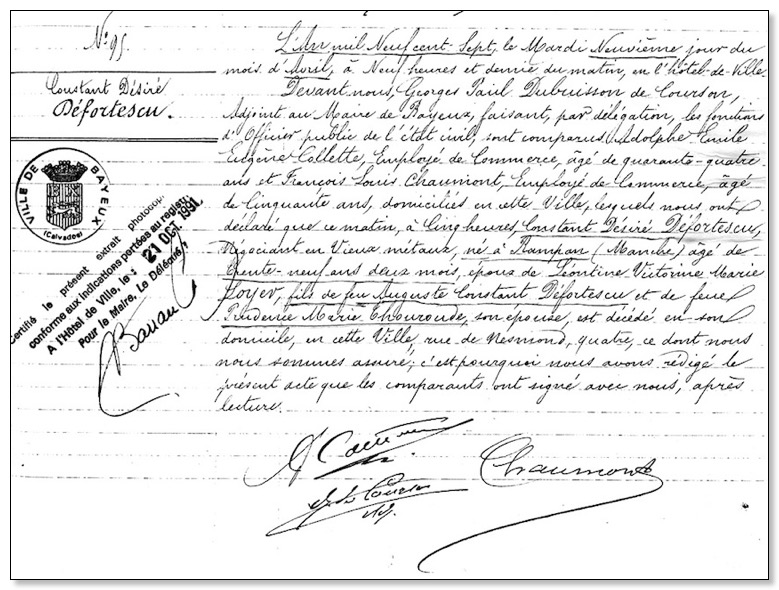 N.° 95
Constant Désiré
Défortescu.
VILLE DE BAYEUX
(Calvados)
Certifié le présent extrait photocop
conforme aux indications portées au registre
A l'Hôtel de Ville, le : 21 OCT. 1991
Pour le Maire, Le Délégué :
L'An mil Neuf cent Sept, le Mardi Neuvième jour du
mois d'Avril, à Neuf heures et demie du matin, en l'hôtel-de-Ville
Devant nous, Georges Paul Dubuisson de Courson,
Adjoint au Maire de Bayeux, faisant, par délégation, les fonctions
d'Officier public de l'état civil, sont comparus Adolphe Emile
Eugène Collette, Employé de Commerce, âgé de quarante-quatre
ans et François Louis Chaumont, Employé de Commerce, âgé
de Cinquante ans, domiciliés en cette Ville, lesquels nous ont
déclaré que ce matin, à Cinq heures, Constant Désiré Défortescu,
Négociant en Vieux métaux, né à Rampan (Manche) âgé de
trente-neuf ans deux mois, époux de Léontine Victorine Marie
Loyer, fils de feu Auguste Constant Défortescu et de feue
Prudence Marie Chouroude, son épouse, est décédé en son
domicile, en cette Ville, rue de Nesmond, quatre, ce dont nous
nous sommes assuré; c'est pourquoi nous avons rédigé le
présent acte que les comparants ont signé avec nous, après
lecture.
Chaumont